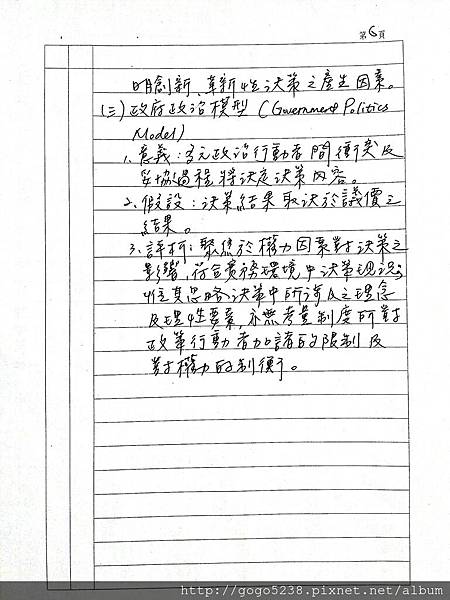 第6頁
明創新、革新性決策之產生因素。
(三)政府政治模型(Government Politics
Model)
1、意義:多元政治行動者間衝突及
妥協過程將決定決策內容。
2、假設:決策結果取決於議價之
結果。
3、評析:聚焦於權力因素對決策之
影響,符合實務環境中決策現況。
惟其忽略決策中所涉及之理念
及理性要素,亦無考量制度所對
政策行動者加諸的限制及
對權力的制衡。
http://gogo5238.pixnet.net/album